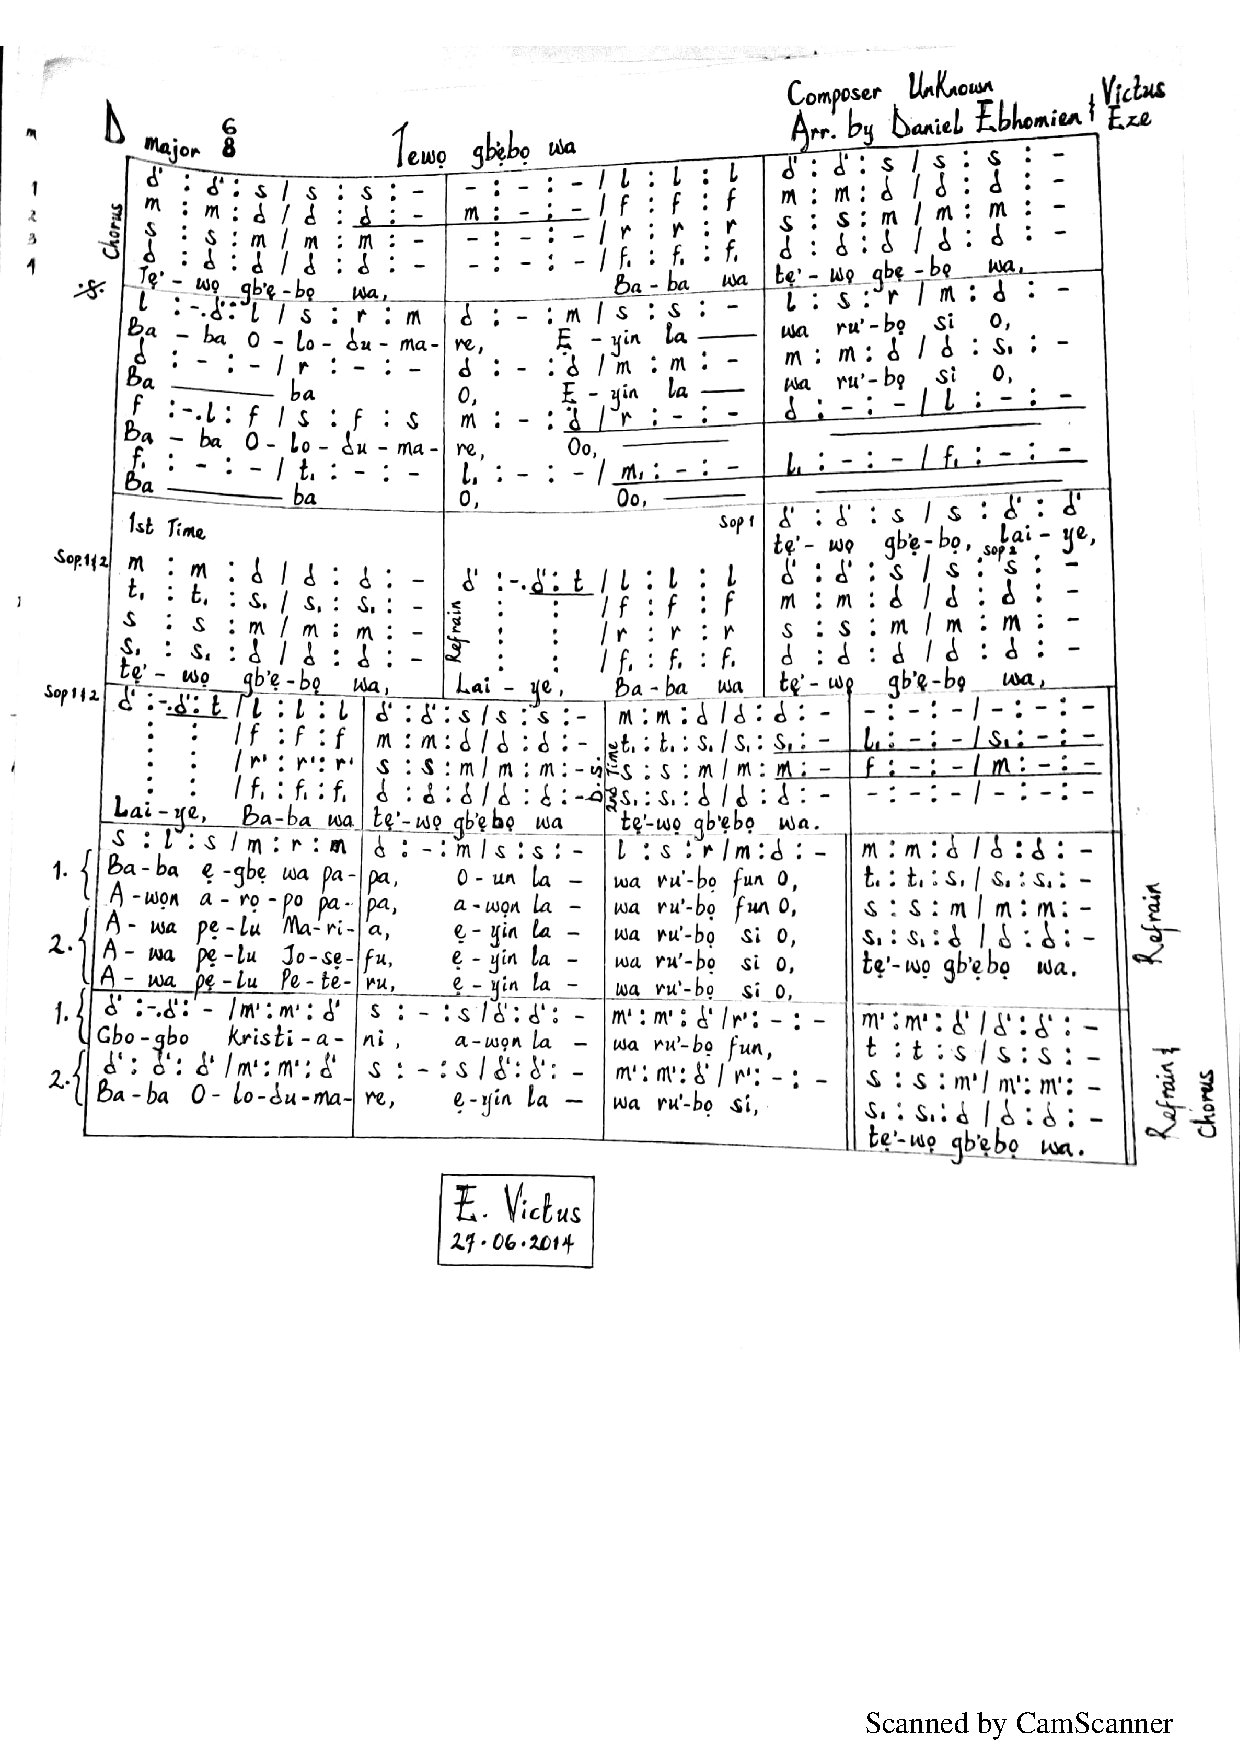 Composer Unknown
Arr. by Daniel Ebhomien & Victus Eze
D major 6/8
Tewọ gbẹbọ wa
Chorus
d' : d' : s / s : s : - | - : - : - / l : l : l | d' : d' : s / s : s : -
m : m : d / d : d : - | m : - : - / f : f : f | m : m : d / d : d : -
s : s : m / m : m : - | - : - : - / r : r : r | s : s : m / m : m : -
d : d : d / d : d : - | - : - : - / f, : f, : f, | d : d : d / d : d : -
Tẹ'- wọ gb'ẹ-bọ wa, Ba-ba wa tẹ'-wọ gbẹ-bọ wa,
l : -.d' : l / s : r : m | d : - : m / s : s : - | l : s : r / m : d : -
Ba-ba O-lo-du-ma-re, Ẹ-yin la wa ru'-bọ si O,
d : - : - / r : - : - | d : - : d / m : m : - | m : m : d / d : s, : -
Ba ba O, E-yin la wa ru'-bọ si O,
f : -.l : f / s : f : s | m : - : d / r : - : - | d : - : - / l : - : -
Ba-ba O-lo-du-ma-re, Oo,
f, : - : - / t, : - : - | l, : - : - / m, : - : - | l, : - : - / f, : - : -
Ba ba O, Oo,
1st Time
Sop 1 d' : d' : s / s : d' : d'
tẹ'-wọ gb'ẹ-bọ, Lai-ye,
Sop.1&2 sop 2
m : m : d / d : d : - | d' : -.d' : t / l : l : l | d' : d' : s / s : s : -
t, : t, : s, / s, : s, : - | : : / f : f : f | m : m : d / d : d : -
s : s : m / m : m : - | Refrain : : / r : r : r | s : s : m / m : m : -
s, : s, : d / d : d : - | : : / f, : f, : f, | d : d : d / d : d : -
tẹ'-wọ gb'ẹ-bọ wa, Lai-ye, Ba-ba wa tẹ'-wọ gb'ẹ-bọ wa,
Sop 1&2
d' : -.d' : t / l : l : l | d' : d' : s / s : s : - | m : m : d / d : d : - | - : - : - / - : - : -
: : / f : f : f | m : m : d / d : d : - | t, : t, : s, / s, : s, : - | l, : - : - / s, : - : -
: : / r' : r' : r' | s : s : m / m : m : - | s : s : m / m : m : - | f : - : - / m : - : -
: : / f, : f, : f, | d : d : d / d : d : - | s, : s, : d / d : d : - | - : - : - / - : - : -
D.S.
2nd Time
Lai-ye, Ba-ba wa tẹ'-wọ gb'ẹbọ wa tẹ'-wọ gb'ẹbọ wa.
s : l : s / m : r : m | d : - : m / s : s : - | l : s : r / m : d : - | m : m : d / d : d : -
1. Ba-ba ẹ-gbẹ wa pa-pa, O-un la - wa ru'-bọ fun O, t, : t, : s, / s, : s, : -
A-wọn a-rọ-po pa-pa, a-wọn la - wa ru'-bọ fun O, s : s : m / m : m : -
2. A-wa pẹ-lu Ma-ri-a, ẹ-yin la - wa ru'-bọ si O, s, : s, : d / d : d : -
A-wa pẹ-lu Jo-sẹ-fu, ẹ-yin la - wa ru'-bọ si O, tẹ'-wọ gb'ẹbọ wa.
A-wa pẹ-lu Pe-te-ru, ẹ-yin la - wa ru'-bọ si O,
Refrain
1. d' : -.d' : - / m' : m' : d' | s : - : s / d' : d' : - | m' : m' : d' / r' : - : - | m' : m' : d' / d' : d' : -
Gbo-gbo Kristi-a-ni, a-wọn la - wa ru'-bọ fun, t : t : s / s : s : -
2. d' : d' : d' / m' : m' : d' | s : - : s / d' : d' : - | m' : m' : d' / r' : - : - | s : s : m' / m' : m' : -
Ba-ba O-lo-du-ma-re, ẹ-yin la - wa ru'-bọ si, s, : s, : d / d : d : -
tẹ'-wọ gb'ẹbọ wa.
Refrain & Chorus
E. Victus
27.06.2014
Scanned by CamScanner